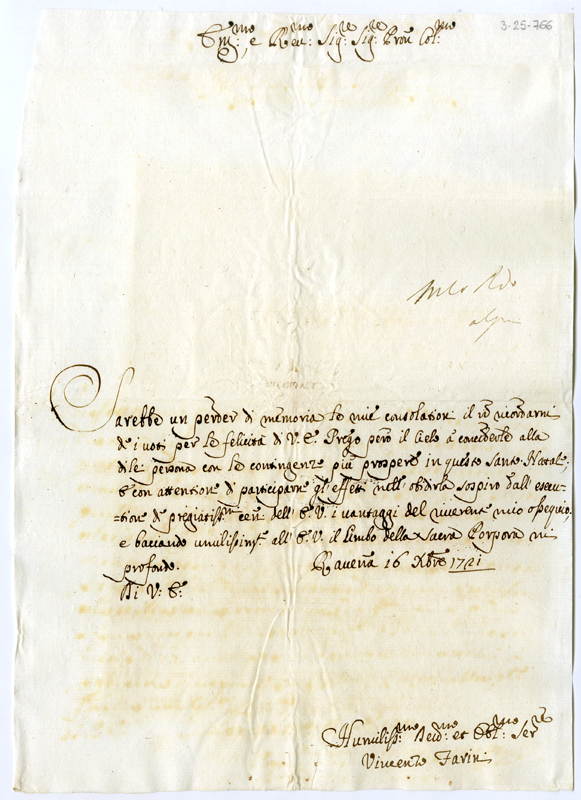 3-25-766
Em:mo e Reu:mo Sig:re Sig:re Pron Col:mo
Sarebbe un perder di memoria le mie consolationi il nõ ricordarmi
de i uoti per le felicità di V. E. Prego però il Cielo à concederle alla
di le persona con le contingenze più prospere in questo Santo Natale
E con attentione di participarne gl'effetti nell'obidirla sospiro dall'esecu-
tione di pregiatiss:mi cen̄i dell'E. V. i vantaggi del riuerente mio ossequio,
e baciando umilissim:te all'E. V. il limbo della Sacra Porpora mi
profondo.
Rauena 16 Xbre 1721
Di V: E:
Humiliss:mo Deu:mo et Obl:mo Ser:re
Vincenzo Farini